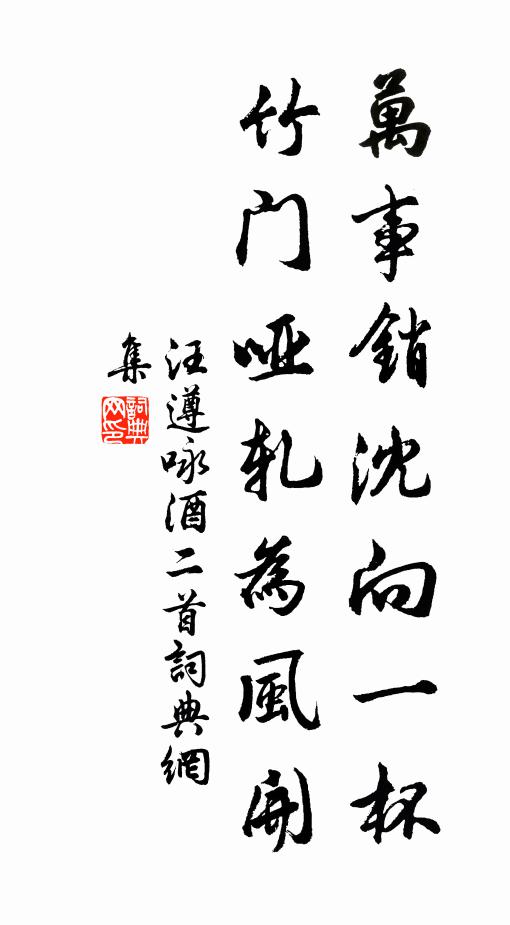 萬事銷沈向一杯
竹门哑軋為風開
汪遵咏酒二首詞典網
集
詞典網印